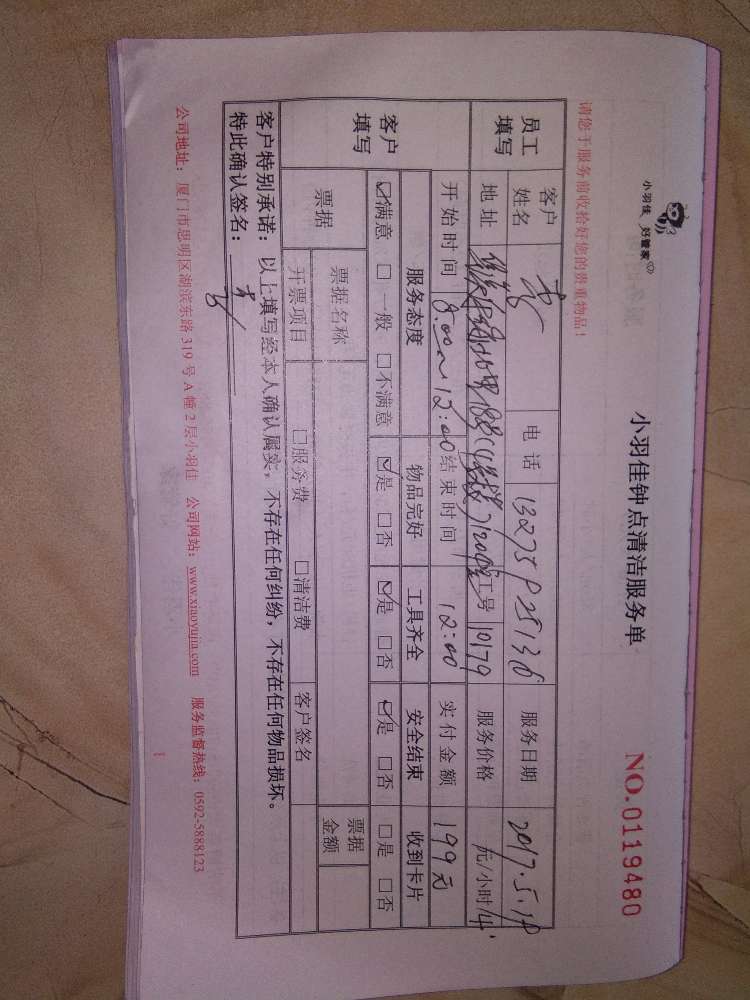 小羽佳 好管家
小羽佳钟点清洁服务单
NO.0119480
请您于服务前收拾好您的贵重物品！
员工填写
客户姓名 李 电话 服务日期 2017.5.18
地址 工号 10179 服务价格 元/小时/4
开始时间 8:00~12:00 结束时间 12:00 实付金额 199元
客户填写
服务态度 物品完好 工具齐全 安全结束 收到卡片
☑满意 □一般 □不满意 ☑是 □否 ☑是 □否 ☑是 □否 □是 □否
票据 票据名称 票据金额
开票项目 □服务费 □清洁费 客户签名
客户特别承诺：以上填写经本人确认属实，不存在任何纠纷，不存在任何物品损坏。
特此确认签名：李
公司地址：厦门市思明区湖滨东路 319 号 A 幢 2 层小羽佳 公司网站：www.xiaoyujia.com 服务监督热线：0592-5888123
1